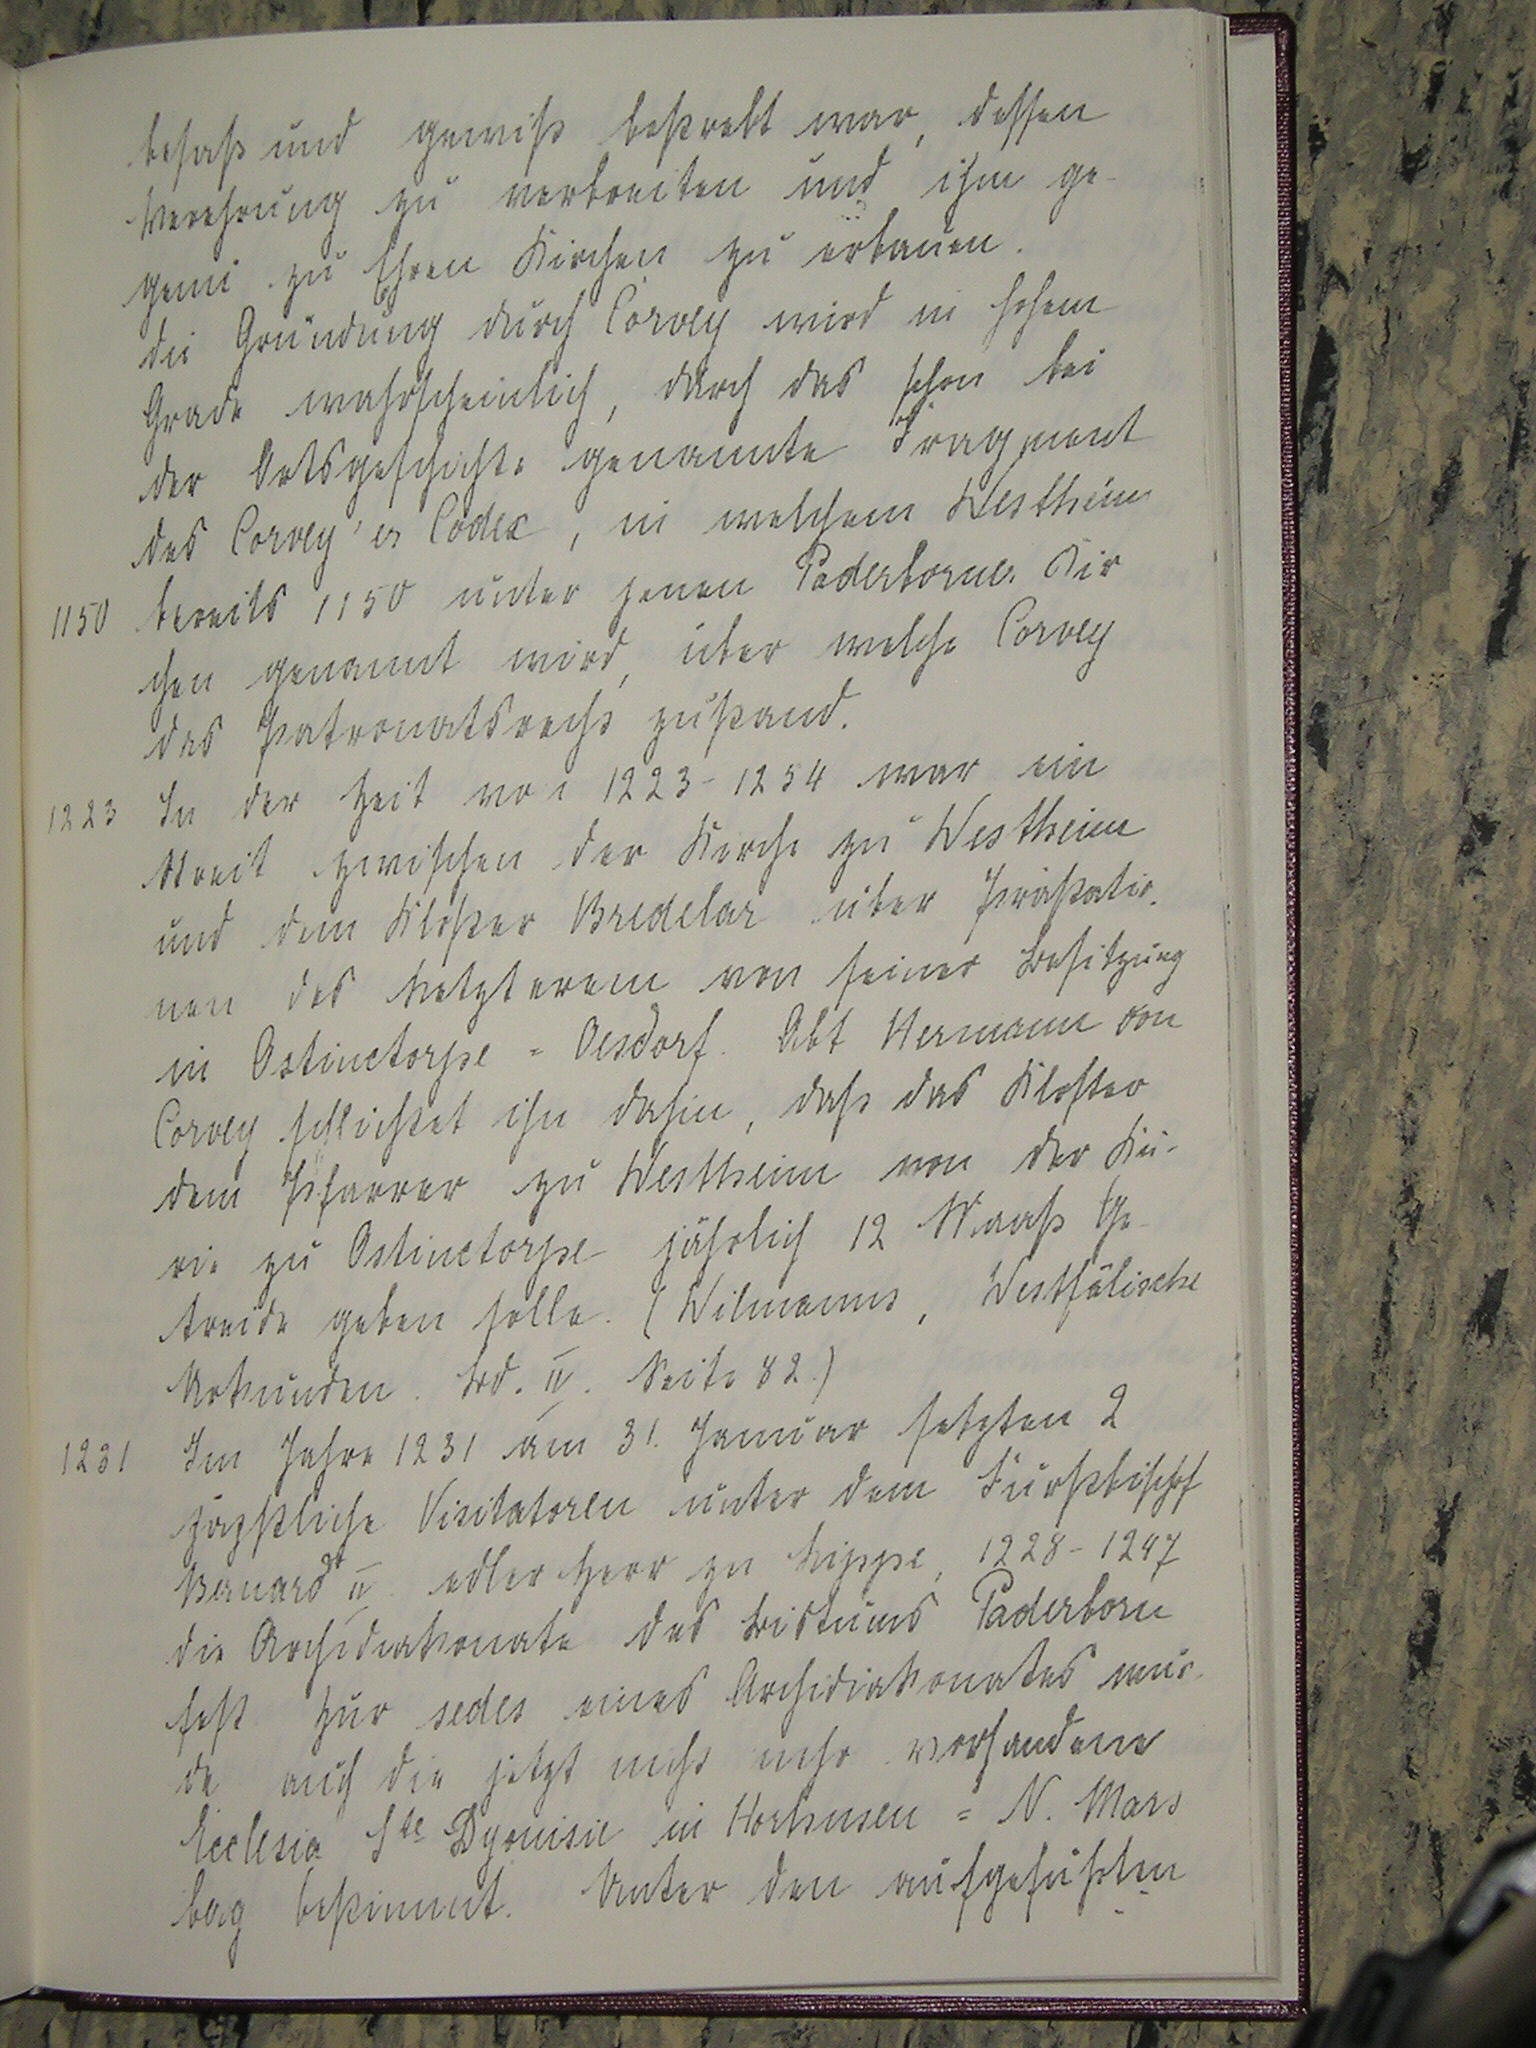 besaß und gewiß bestrebt war, dessen
Verehrung zu verbreiten und ihm ge-
zu Ehren Kirchen zu erbauen.
die Gründung durch Corvey wird in hohem
Grade wahrscheinlich, durch das schon bei
der Ortsgeschichte genannte Fragment
des Corvey'er Codex, in welchem Westheim
1150 bereits 1150 unter jenen Paderborner Kir
chen genannt wird, über welche Corvey
das Patronatsrecht zustand.
1223 In der Zeit von 1223-1254 war ein
Streit zwischen der Kirche zu Westheim
und dem Kloster Bredelar über Prästatio-
nen des Letzterem von seiner Besitzung
in Ostinctorpe = Oesdorf. Abt Hermann von
Corvey schlichtet ihn dahin, daß das Kloster
dem Pfarrer zu Westheim von der Ku-
rie zu Ostinctorpe jährlich 12 Maaß Ge-
treide geben solle. (Wilmanns, Westfälische
Urkunden. Bd. IV. Seite 82.)
1231 Im Jahre 1231 am 31. Januar setzten 2
päpstliche Visitatoren unter dem Fürstbischof
Bernard IV edler Herr zu Lippe, 1228-1247
die Archidiakonate des Bistums Paderborn
fest. Zur sedes eines Archidiakonates wur-
de auch die jetzt nicht mehr vorhandene
Ecclesia Ste Dyonisie in Horhusen = N. Mars
berg bestimmt. Unter den aufgeführten